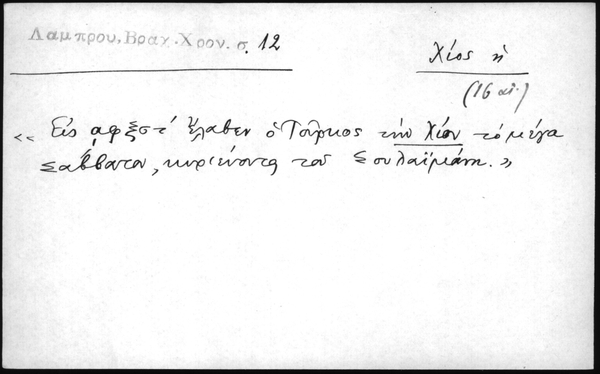 Λαμπρου, Βραχ. Χρον. σ. 12
Χίος ἡ
(16 αἰ.)
« Εἰς ͵αφξστ´ ἔλαβεν ὁ Τοῦρκος τὴν Χίον τὸ μέγα
Σάββατον, κυριεύοντα τοῦ Σουλαϊμάνη. »